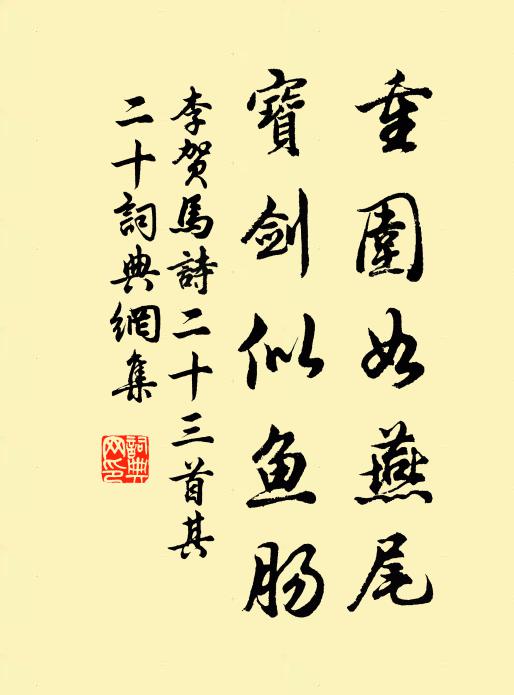 重圍如燕尾
寶劍似鱼肠
李贺馬詩二十三首其
二十詞典網集
詞典
网印